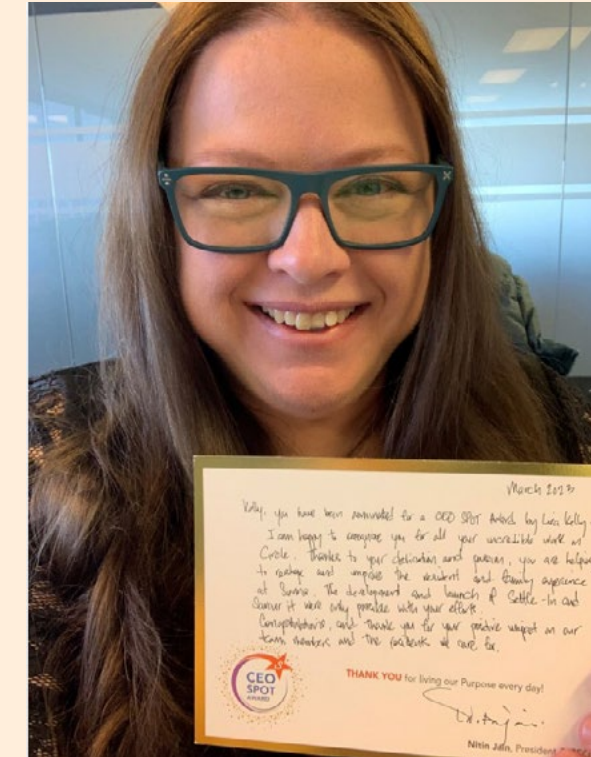 March 2023
Kelly, you have been nominated for a CEO SPOT Award by Lisa Kelly.
I am happy to recognize you for all your incredible work on
Circle. Thanks to your dedication and passion, you are helping
to reshape and improve the resident and family experience
at Sunrise. The development and launch of Settle-In and
it were only possible with your efforts.
Congratulations, and thank you for your positive impact on our
team members and the residents we care for.
CEO
SPOT
AWARD
THANK YOU for living our Purpose every day!
Nitin Jain, President